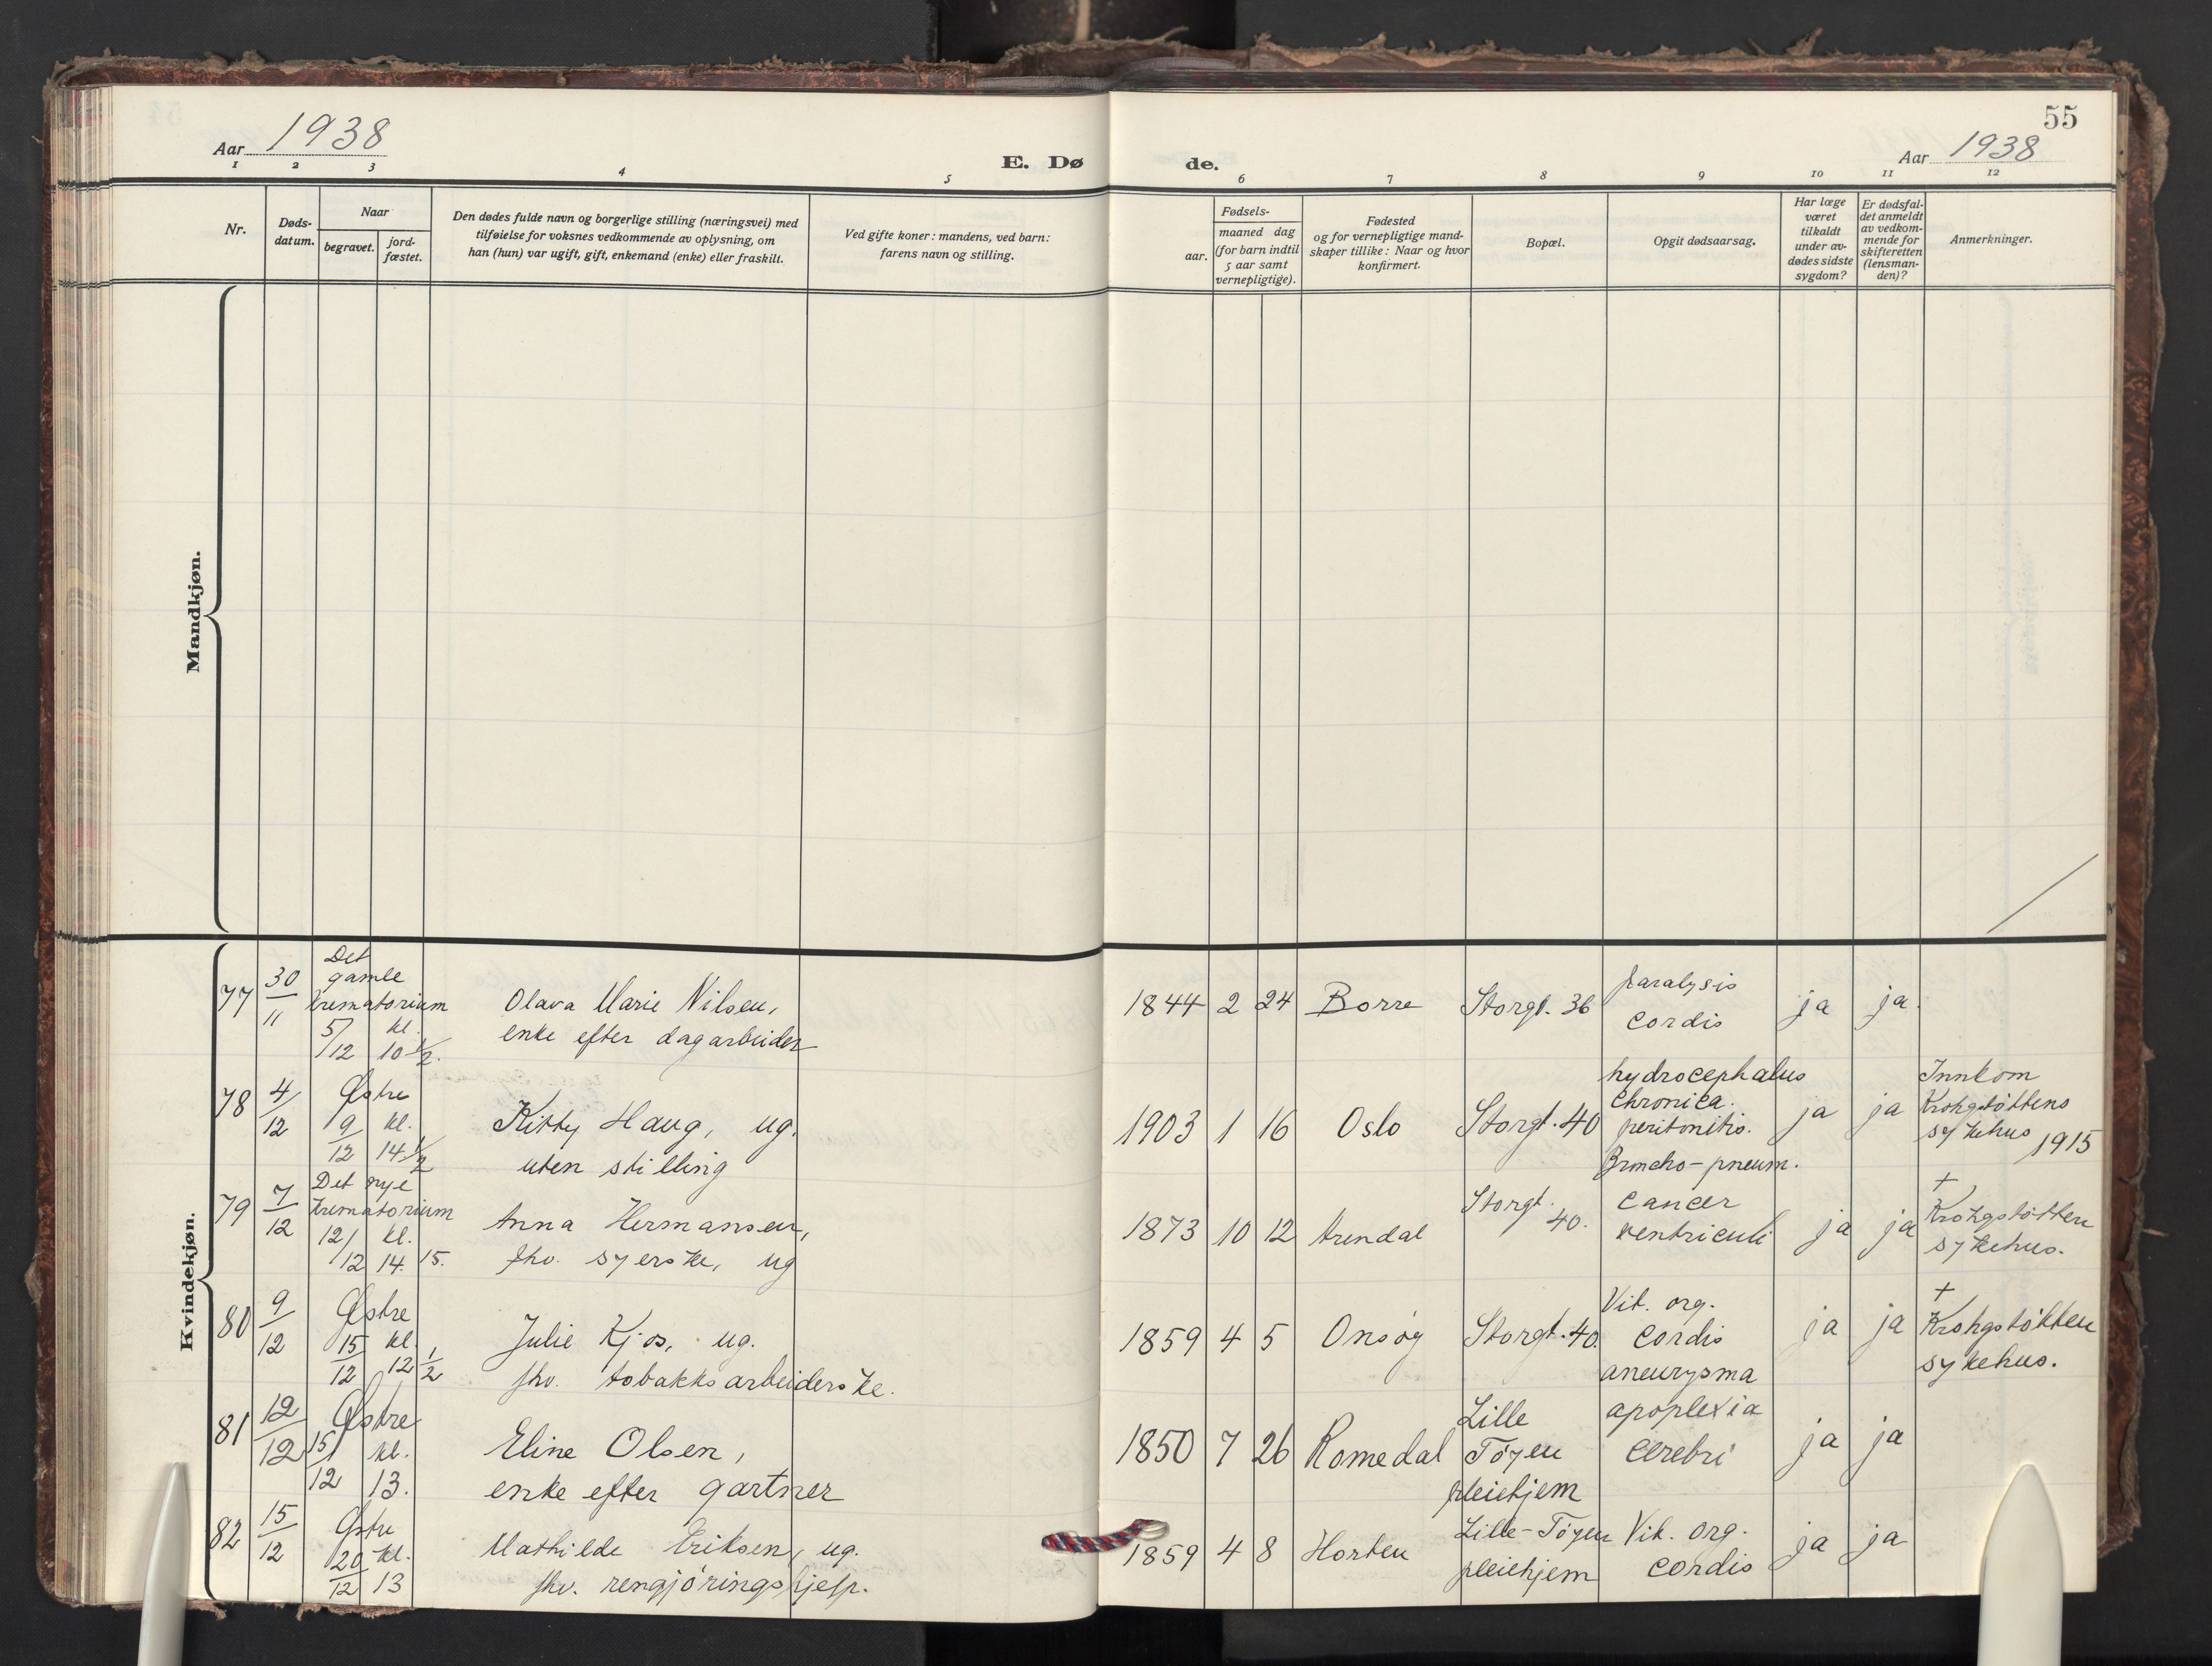 55
Aar 1938
E. Dø de.
Aar 1938
1 2 3 4 5 6 7 8 9 10 11 12
Nr.
Døds-
datum.
Naar
begravet.
jord-
fæstet.
Den dødes fulde navn og borgerlige stilling (næringsvei) med
tilføielse for voksnes vedkommende av oplysning, om
han (hun) var ugift, gift, enkemand (enke) eller fraskilt.
Ved gifte koner: mandens, ved barn:
farens navn og stilling.
Fødsels-
aar.
maaned dag
(for barn indtil
5 aar samt
vernepligtige).
Fødested
og for vernepligtige mand-
skaper tillike: Naar og hvor
konfirmert.
Bopæl.
Opgit dødsaarsag.
Har læge
været
tilkaldt
under av-
dødes sidste
sygdom?
Er dødsfal-
det anmeldt
av vedkom-
mende for
skifteretten
(lensman-
den)?
Anmerkninger.
Mandkjøn.
Kvindekjøn.
77
30/11
Det
gamle
krematorium
5/12
kl.
10 1/2.
Olava Marie Nilsen,
enke efter dagarbeider
1844 2 24
Borre
Storgt. 36
paralysis
cordis
ja
ja.
78
4/12
Østre
9/12
kl.
14 1/2
Kitty Haug, ug.
uten stilling
1903 1 16
Oslo
Storgt. 40
hydrocephalus
chronica.
peritonitis.
Broncho-pneum.
ja
ja
Innkom
Krohgstøttens
sykehus 1915
79
7/12
Det nye
krematorium
12/12
kl.
14. 15.
Anna Hermansen,
fhv. syerske, ug
1873 10 12
Arendal
Storgt.
40.
cancer
ventriculi
ja
ja
+
Krohgstøtten
sykehus.
80
9/12
Østre
15/12
kl.
12 1/2
Julie Kjos, ug.
fhv. tobakksarbeiderske.
1859 4 5
Onsøy
Storgt. 40.
Vit. org.
cordis
aneurysma
ja
ja
+
Krohgstøtten
sykehus.
81
12/12
Østre
15/12
kl.
13.
Eline Olsen,
enke efter gartner
1850 7 26
Romedal
Lille
Tøyen
pleiehjem
apoplexia
cerebri
ja
ja
82
15/12
Østre
20/12
kl.
13
Mathilde Eriksen, ug.
fhv. rengjøringshjelp.
1859 4 8
Horten
Lille-Tøyen
pleiehjem
Vit. org.
cordis
ja
ja